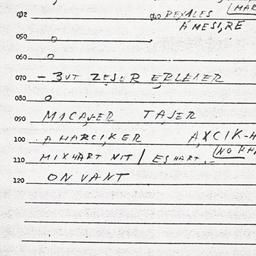 02 DEXALES (MAR
AMESIRE
050 O
060 O
070 - BUT ZESER ERLEIER
080 O
090 MACAJER TAJER
100 A WARCIKER AXCIK-H
110 MIXHART NIT / ES HART.. (NO
120 ON VANT